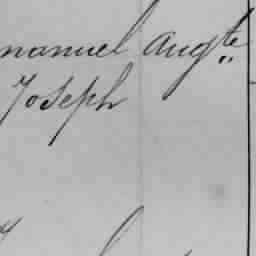 manuel Aug^te
Joseph